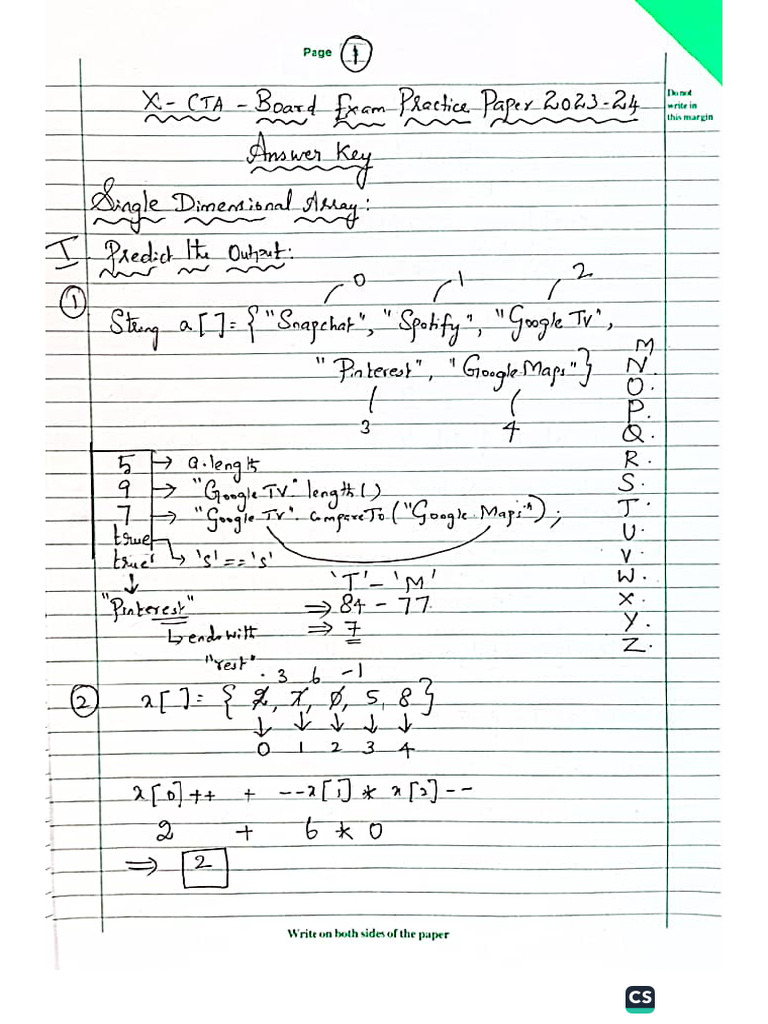 Page 1
Do not
write in
this margin
X - CTA - Board Exam Practice Paper 2023-24
Answer Key
Single Dimensional Array:
I Predict the Output:
0 1 2
① String a[]= {"Snapchat", "Spotify", "Google TV",
"Pinterest", "Google Maps"}
3 4
5 → a.length
9 → "Google TV" length()
7 → "Google TV". compareTo("Google Maps");
true
true → 's'=='s'
'T' - 'M'
"Pinterest" ⇒ 84 - 77
↳ endswith ⇒ 7
"rest"
M
N.
O.
P.
Q.
R.
S.
T.
U.
V.
W.
X.
Y.
Z.
3 6 -1
② x[]= {2, 7, 0, 5, 8}
↓ ↓ ↓ ↓ ↓
0 1 2 3 4
x[0]++ + --x[1] * x[2]--
2 + 6 * 0
⇒ 2
Write on both sides of the paper
CS